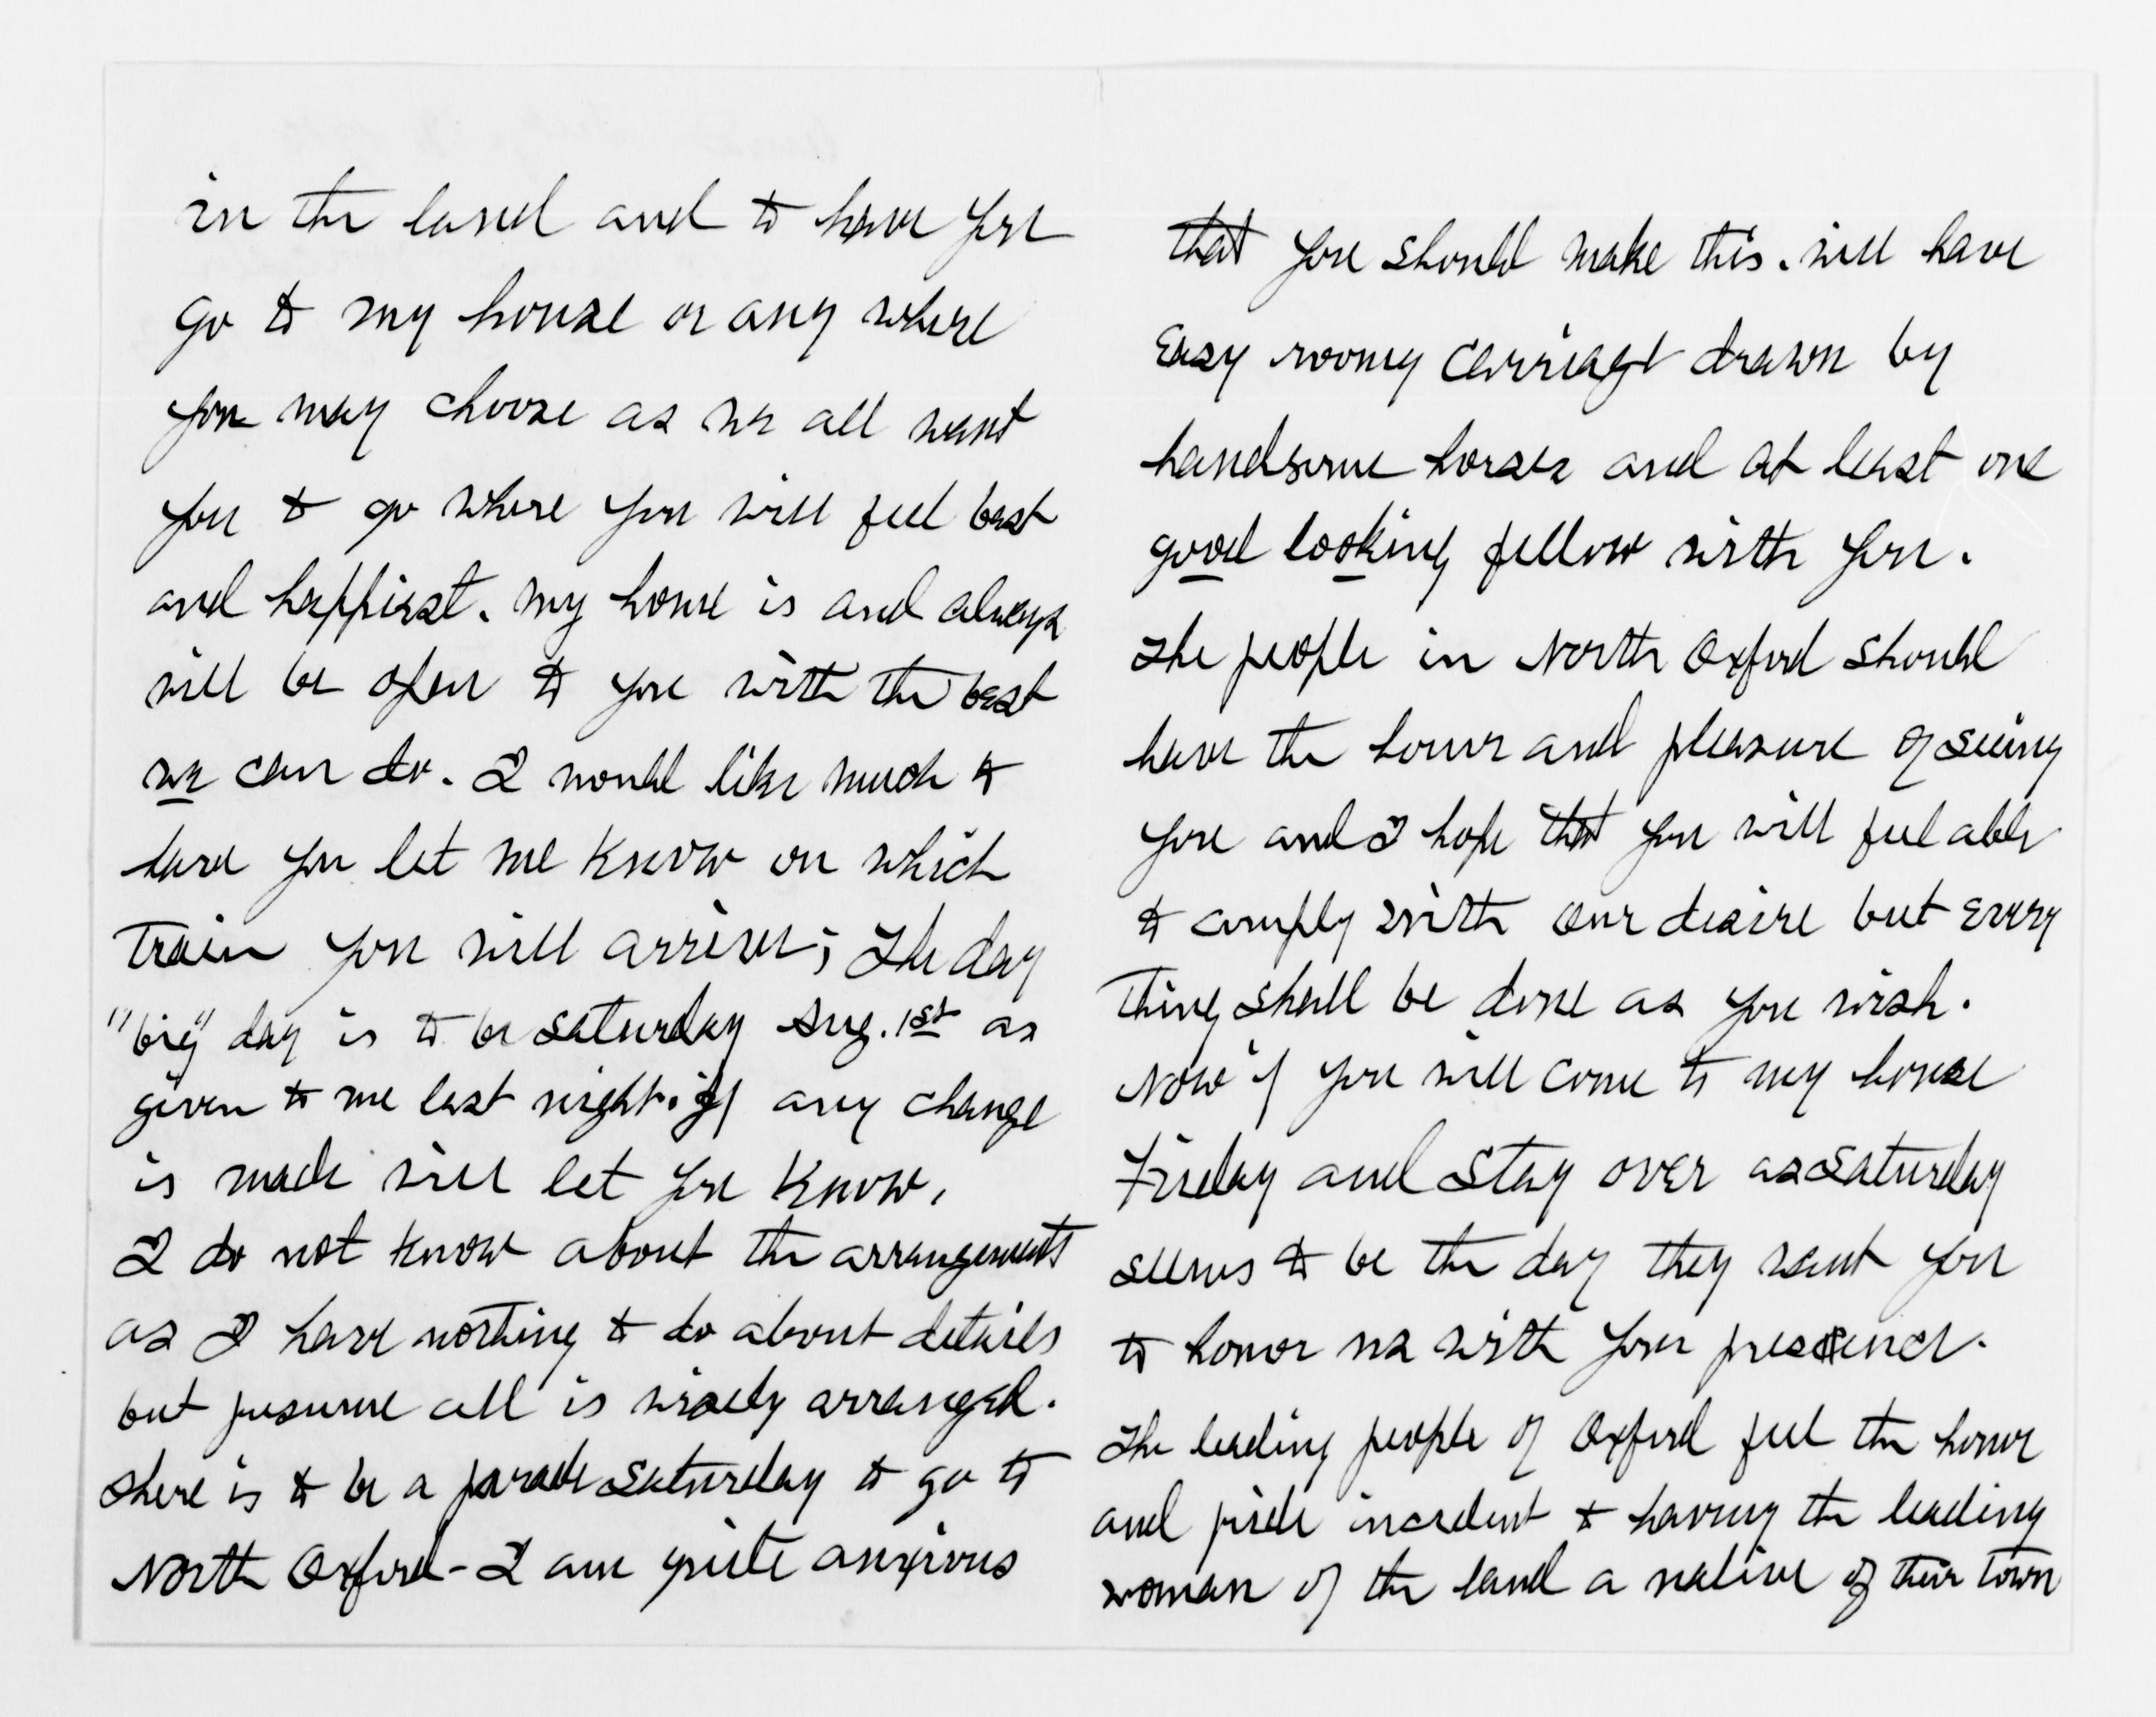 in the land and to have you
go to my house or any where
you may choose as we all want
you to go where you will feel best
and happiest. My home is and always
will be open to you with the best
we can do. I would like much to
have you let me know on which
train you will arrive; The day
"big" day is to be Saturday Aug. 1st as
given to me last night. if any change
is made will let you know.
I do not know about the arrangements
as I have nothing to do about details
but presume all is wisely arranged.
There is to be a parade Saturday to go to
North Oxford - I am quite anxious
that you should make this. will have
Easy roomy carriage drawn by
handsome horses and at least one
good looking fellow with you.
The people in North Oxford should
have the honor and pleasure of seeing
you and I hope that you will feel able
to comply with our desire but every
thing shall be done as you wish.
Now if you will come to my house
Friday and stay over as Saturday
seems to be the day they want you
to honor us with your presence.
The leading people of Oxford feel the honor
and pride incident to having the leading
woman of the land a native of their town